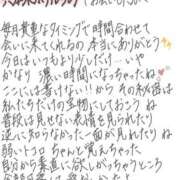 毎月貴重なタイミングで時間合わせて
会いに来てくれるの本当にありがとう
今日はいつもより少しだけ…いや
かなり濃い時間になっちゃったね
ここには書けない!!からその秘密は
私たちだけの宝物にしておこうね
普段は見せない表情を見られたり
逆に知らなかった一面が見れたり
弱いトコロ ちゃんと覚えちゃった
自分から素直に欲しがっちゃうところ